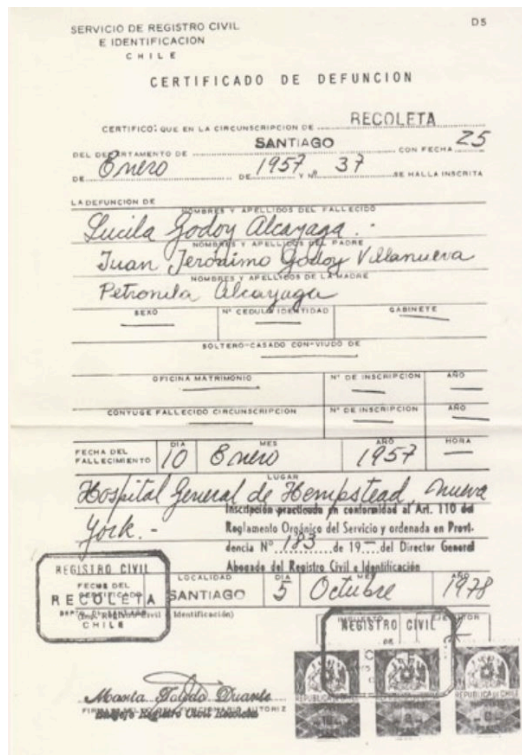 D5
SERVICIO DE REGISTRO CIVIL
E IDENTIFICACION
CHILE
CERTIFICADO DE DEFUNCION
CERTIFICO: QUE EN LA CIRCUNSCRIPCION DE RECOLETA
DEL DEPARTAMENTO DE SANTIAGO CON FECHA 25
DE Enero DE 1957 Y Nº 37 SE HALLA INSCRITA
LA DEFUNCION DE
Lucila Godoy Alcayaga.-
NOMBRES Y APELLIDOS DEL FALLECIDO
Juan Jerónimo Godoy Villanueva
NOMBRES Y APELLIDOS DEL PADRE
Petronila Alcayaga
NOMBRES Y APELLIDOS DE LA MADRE
SEXO Nº CEDULA IDENTIDAD GABINETE
SOLTERO-CASADO CON-VIUDO DE
OFICINA MATRIMONIO Nº DE INSCRIPCION AÑO
CONYUGE FALLECIDO CIRCUNSCRIPCION Nº DE INSCRIPCION AÑO
FECHA DEL FALLECIMIENTO DIA 10 MES Enero AÑO 1957 HORA
LUGAR
Hospital General de Hempstead, Nueva
York.-
Inscripción practicada en conformidad al Art. 110 del
Reglamento Orgánico del Servicio y ordenada en Provi-
dencia Nº 183 de 19 del Director General
Abogado del Registro Civil e Identificación
REGISTRO CIVIL
RECOLETA
CHILE
FECHA DEL
LOCALIDAD SANTIAGO DIA 5 MES Octubre AÑO 1978
REGISTRO CIVIL
REPUBLICA DE CHILE
REPUBLICA DE CHILE
Marta Toledo Duarte